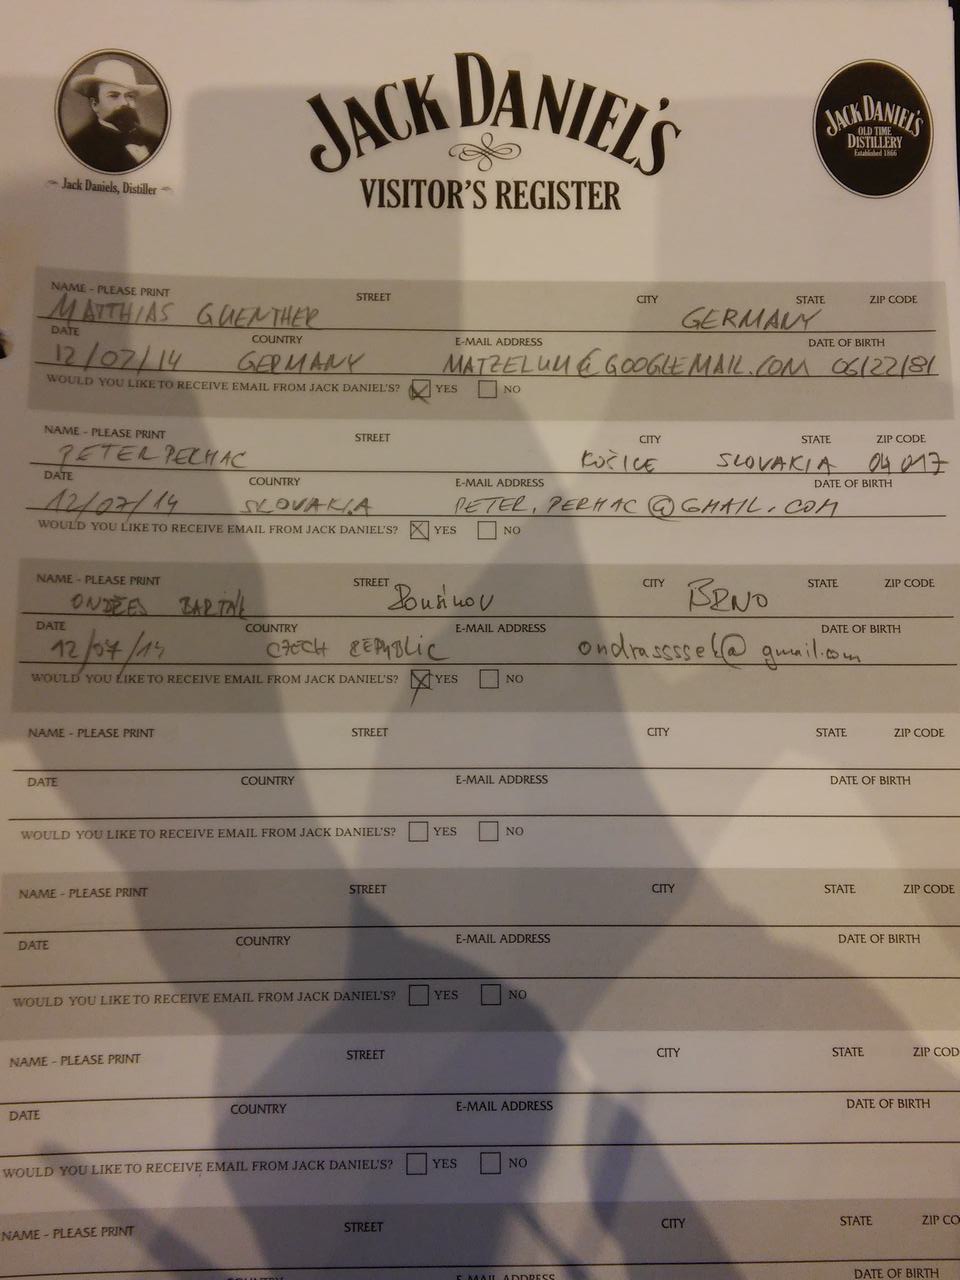 JACK DANIEL'S
VISITOR'S REGISTER
Jack Daniels, Distiller
JACK DANIEL'S
OLD TIME
DISTILLERY
Established 1866
NAME - PLEASE PRINT STREET CITY STATE ZIP CODE
MATTHIAS GUENTHER GERMANY
DATE COUNTRY E-MAIL ADDRESS DATE OF BIRTH
12/07/14 GERMANY MATZELUM@GOOGLEMAIL.COM 06/22/81
WOULD YOU LIKE TO RECEIVE EMAIL FROM JACK DANIEL'S? YES NO
NAME - PLEASE PRINT STREET CITY STATE ZIP CODE
PETER PERHAC KOŠICE SLOVAKIA 04017
DATE COUNTRY E-MAIL ADDRESS DATE OF BIRTH
12/07/14 SLOVAKIA PETER.PERHAC@GMAIL.COM
WOULD YOU LIKE TO RECEIVE EMAIL FROM JACK DANIEL'S? YES NO
NAME - PLEASE PRINT STREET CITY STATE ZIP CODE
BRNO
DATE COUNTRY E-MAIL ADDRESS DATE OF BIRTH
12/07/14 CZECH REPUBLIC ondrasssset@gmail.com
WOULD YOU LIKE TO RECEIVE EMAIL FROM JACK DANIEL'S? YES NO
NAME - PLEASE PRINT STREET CITY STATE ZIP CODE
DATE COUNTRY E-MAIL ADDRESS DATE OF BIRTH
WOULD YOU LIKE TO RECEIVE EMAIL FROM JACK DANIEL'S? YES NO
NAME - PLEASE PRINT STREET CITY STATE ZIP CODE
DATE COUNTRY E-MAIL ADDRESS DATE OF BIRTH
WOULD YOU LIKE TO RECEIVE EMAIL FROM JACK DANIEL'S? YES NO
NAME - PLEASE PRINT STREET CITY STATE ZIP COD
DATE COUNTRY E-MAIL ADDRESS DATE OF BIRTH
WOULD YOU LIKE TO RECEIVE EMAIL FROM JACK DANIEL'S? YES NO
NAME - PLEASE PRINT STREET CITY STATE ZIP CO
COUNTRY E-MAIL ADDRESS DATE OF BIRTH